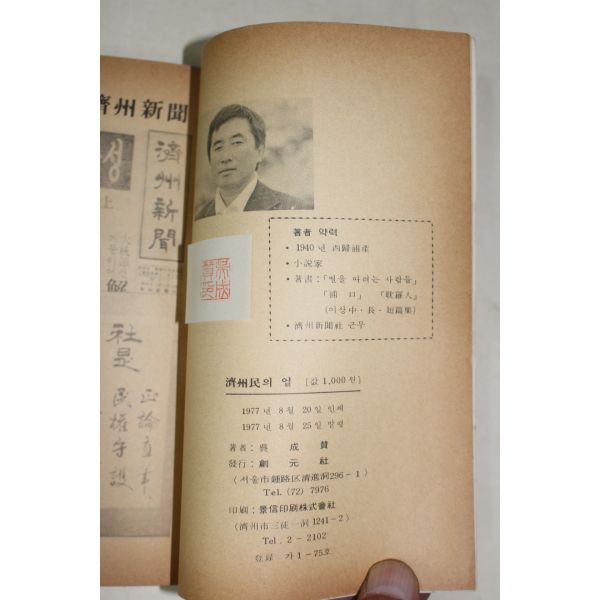 濟州新聞
성
上
濟州新聞
社是
正論直筆
民權守護
著者 약력
• 1940년 西歸浦産
• 小說家
• 著書 : 「별을 따려는 사람들」
「浦口」 「耽羅人」
(이상 中・長・短篇集)
• 濟州新聞社 근무
濟州民의 얼 [값 1,000원]
1977년 8월 20일 인쇄
1977년 8월 25일 발행
著者 : 吳成贊
發行 : 創元社
(서울市鍾路区清進洞296-1)
Tel. (72) 7976
印刷 : 景信印刷株式會社
(濟州市三徒一洞 1241-2)
Tel. 2-2102
登録 가1-75호